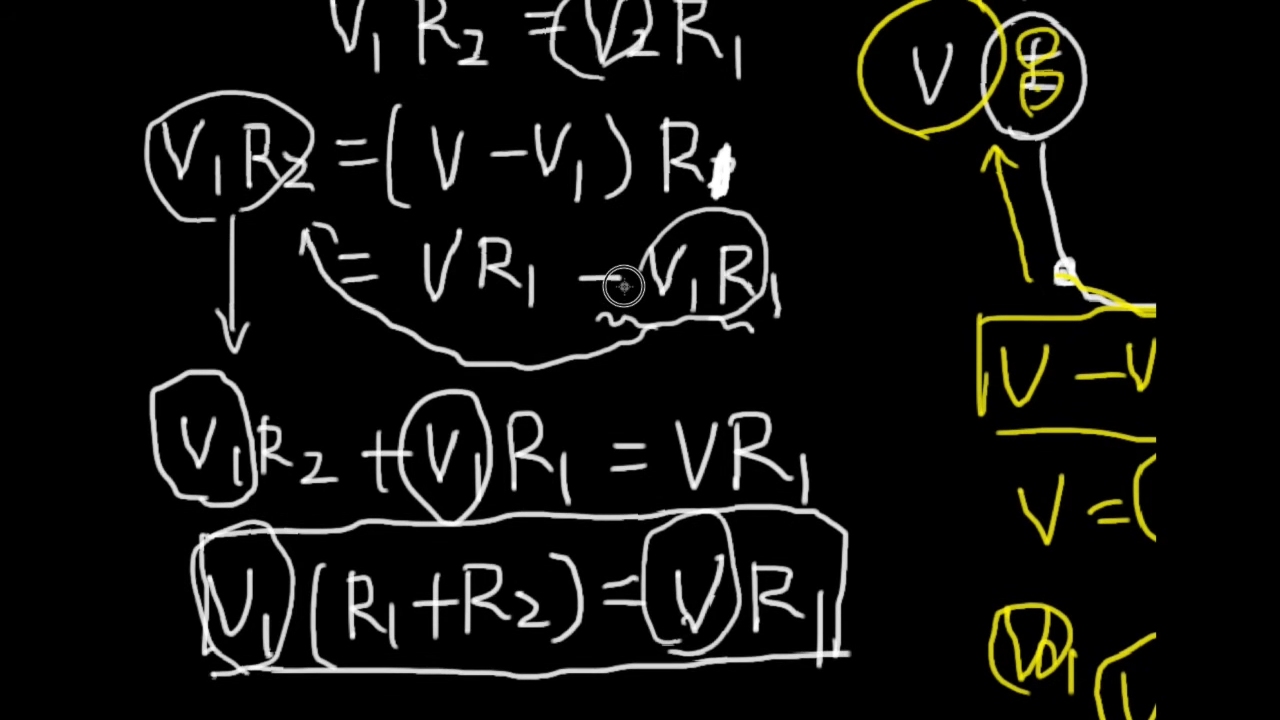 V₁ R₂ = V₂ R₁
V₁ R₂ = ( V - V₁ ) R₁
= V R₁ - V₁ R₁
V₁ R₂ + V₁ R₁ = V R₁
V₁ ( R₁ + R₂ ) = V R₁
V
V - V
V = (